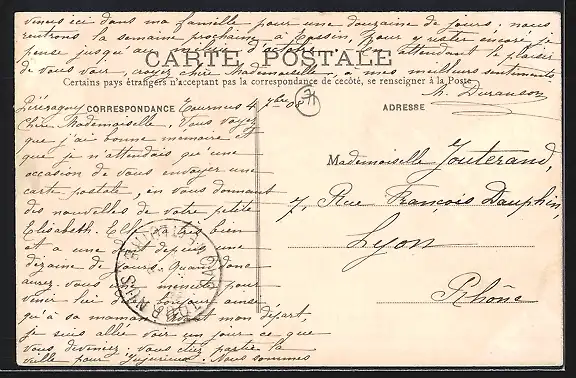 venus ici dans ma famille pour une douzaine de jours. nous
rentrons la semaine prochaine à Cossin, pour y rester encore, je
pense jusqu'au milieu d'octobre. En attendant le plaisir
de vous voir, croyez chère Mademoiselle, à mes meilleurs sentiments
M. Duranson
CARTE POSTALE
Certains pays étrangers n'acceptent pas la correspondance de ce côté, se renseigner à la Poste
CORRESPONDANCE
ADRESSE
Tournus 4 7bre 08
Chère Mademoiselle, Vous voyez
que j'ai bonne mémoire et
que je n'attendais qu'une
occasion de vous envoyer une
carte postale, en vous donnant
des nouvelles de votre petite
Elisabeth. Elle va très bien
et a une dent depuis une
dizaine de jours. Quand donc
aurez-vous une minute pour
venir lui dire bonjour ainsi
qu'à sa maman. Avant mon départ,
je suis allée voir un jour ce que
vous deveniez. Vous étiez partie la
veille pour Jujurieux. Nous sommes
Mademoiselle Jouterand,
7, Rue François Dauphin,
Lyon
Rhône